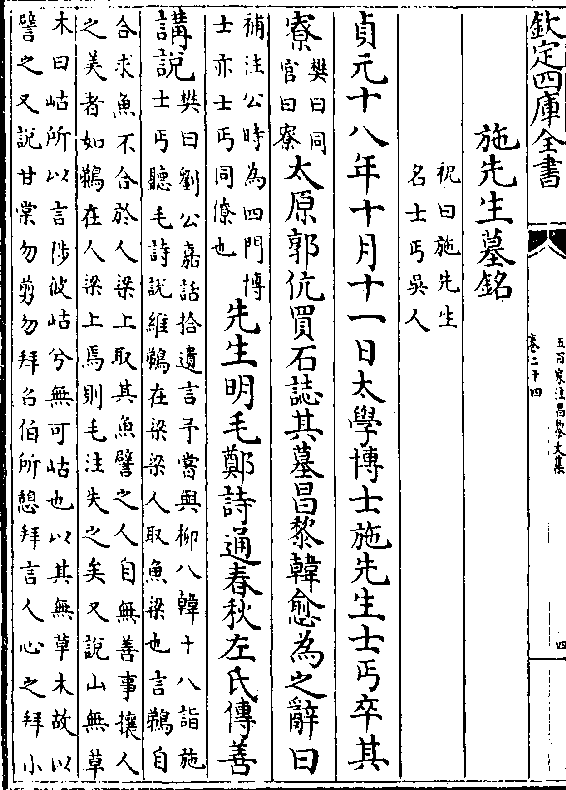 欽定四庫全書
五百家注昌黎文集
卷二十四
四
施先生墓銘
祝曰施先生
名士丐吳人
貞元十八年十月十一日太學博士施先生士丐卒其
寮
樊曰同
官曰寮
太原郭伉買石誌其墓昌黎韓愈為之辭曰
補注公時為四門博
士亦士丐同僚也
先生明毛鄭詩通春秋左氏傳善
講說
樊曰劉公嘉話拾遺言予嘗與柳八韓十八詣施
士丐聽毛詩說維鵜在梁梁人取魚梁也言鵜自
合求魚不合於人梁上取其魚譬之人自無善事攘人
之美者如鵜在人梁上焉則毛注失之矣又說山無草
木曰岵所以言陟彼岵兮無可岵也以其無草木故以
譬之又說甘棠勿剪勿拜召伯所憩拜言人心之拜小